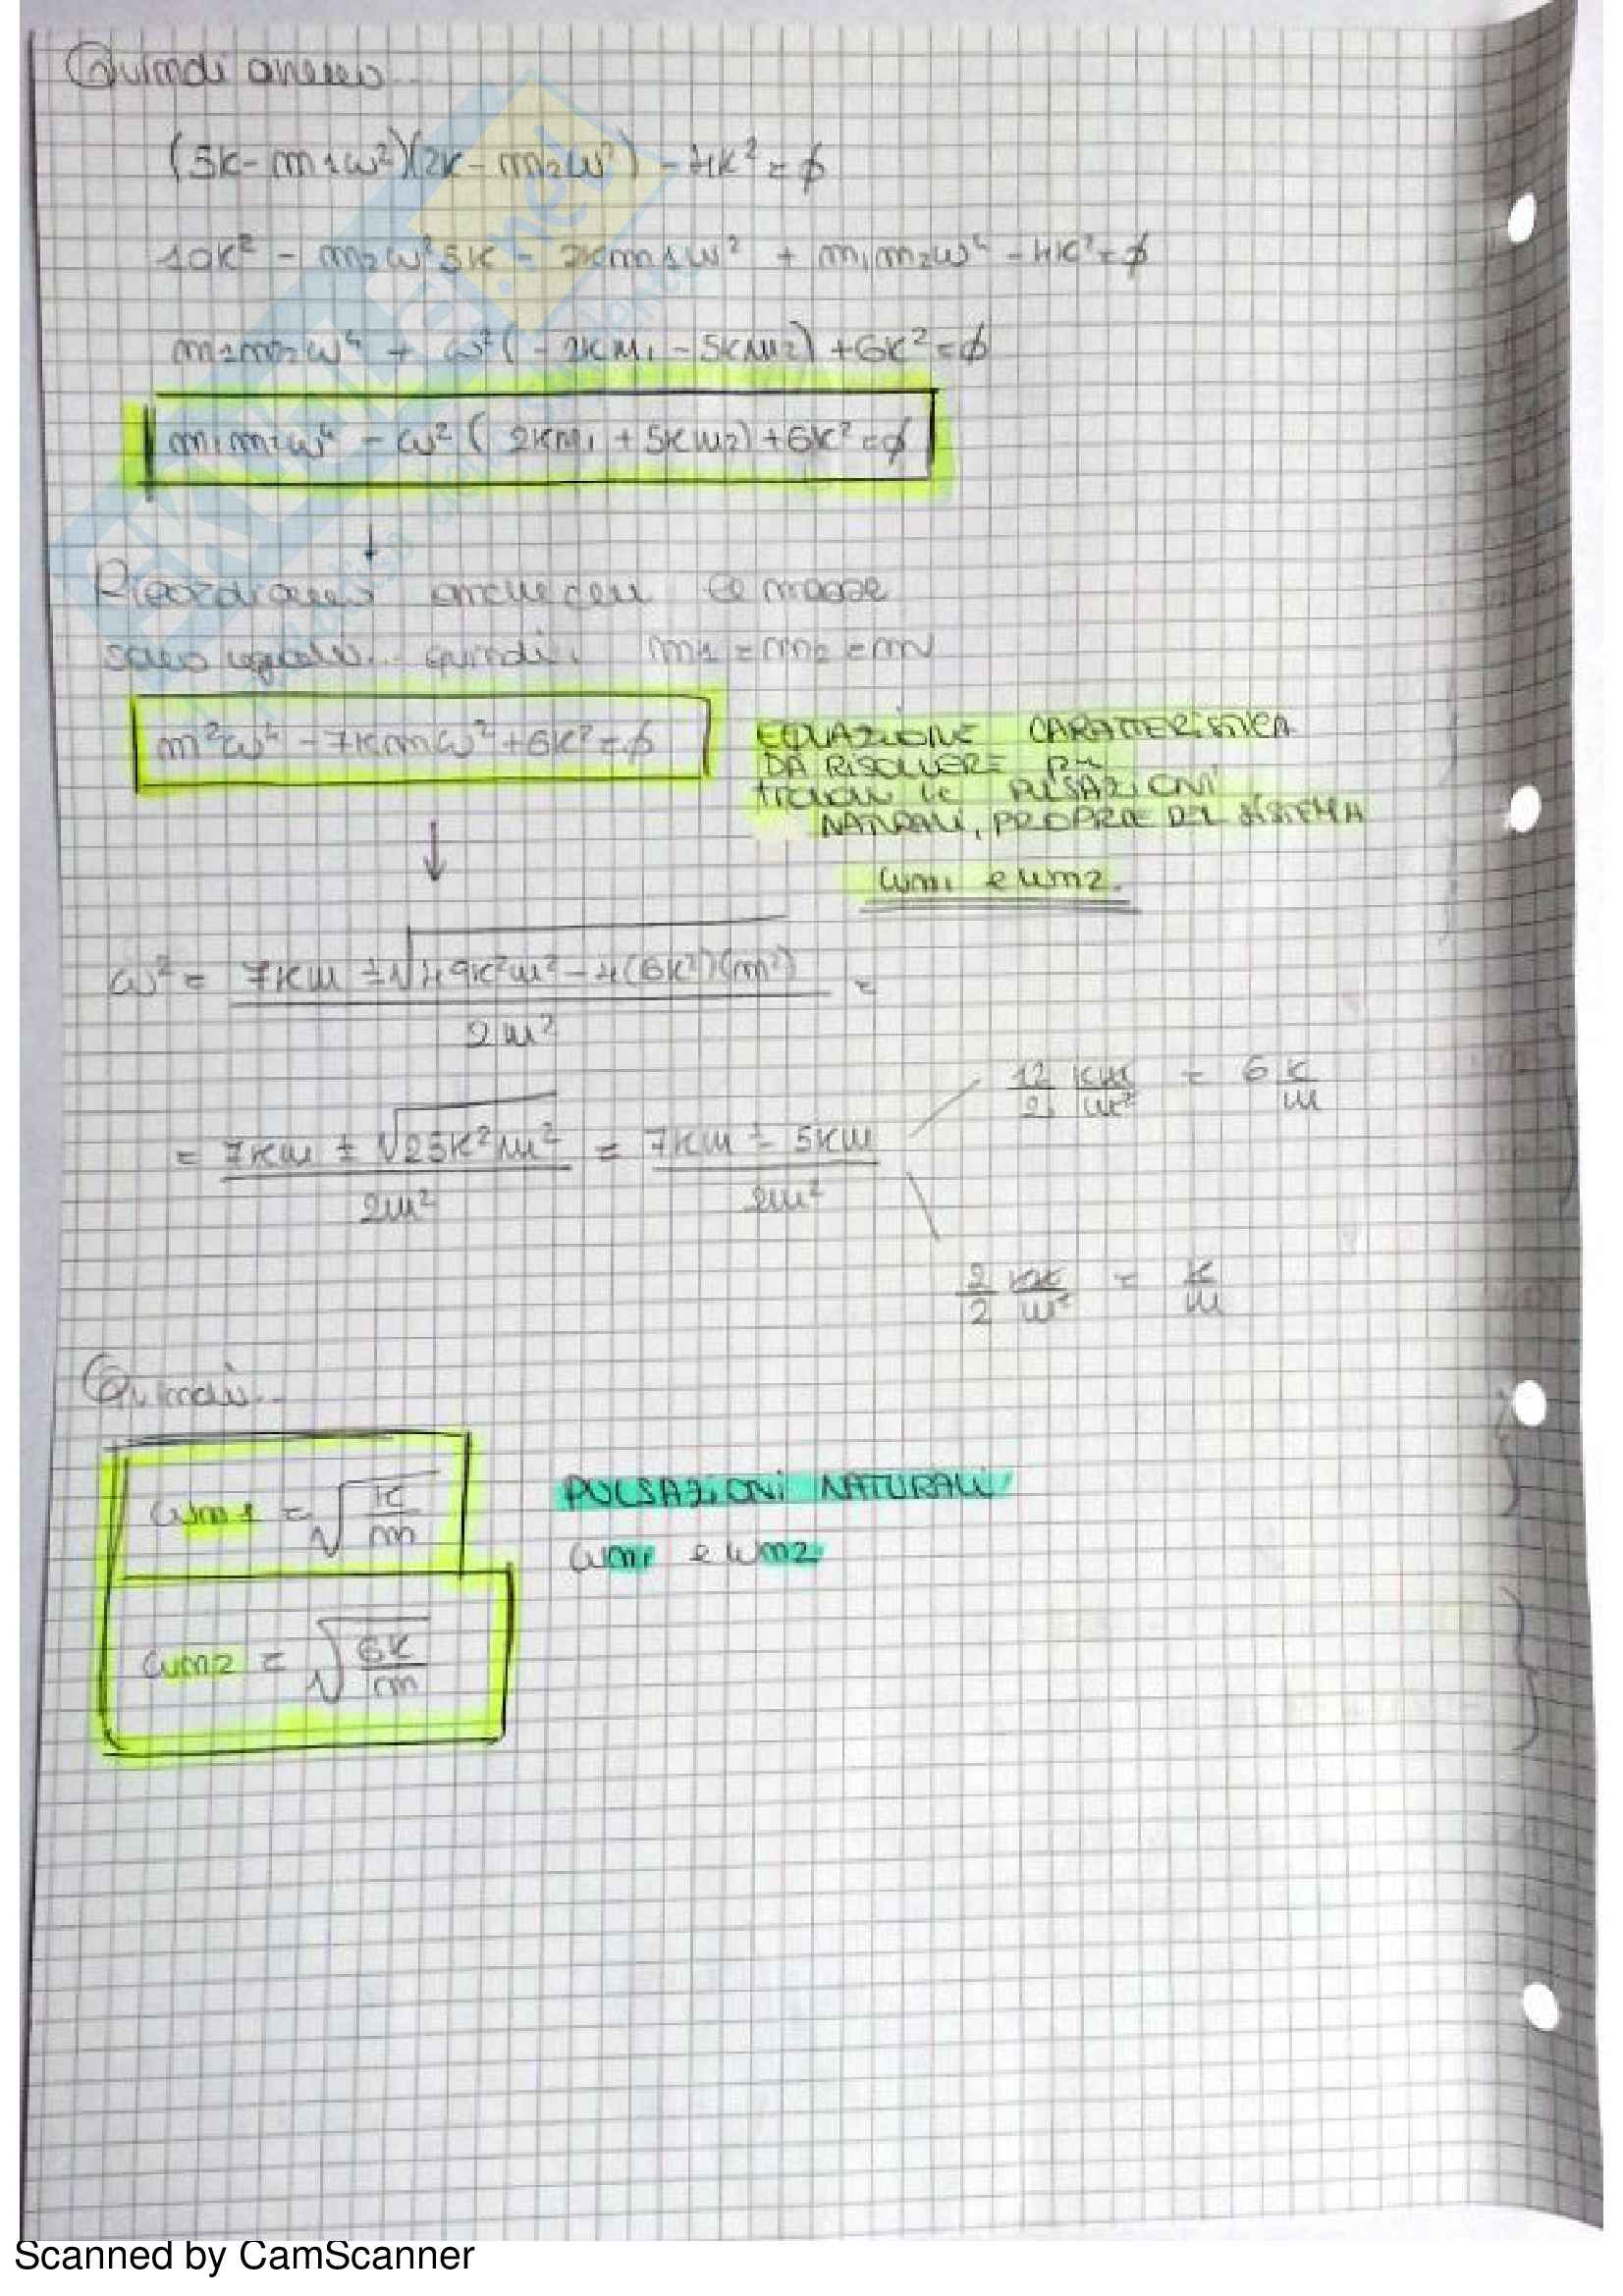 Quindi avremo...
(5k - m1ω²)(2k - m2ω²) - 4k² = ∅
10k² - m2ω²5k - 2km1ω² + m1m2ω⁴ - 4k² = ∅
m1m2ω⁴ + ω²(-2km1 - 5km2) + 6k² = ∅
m1m2ω⁴ - ω²(2km1 + 5km2) + 6k² = ∅
↓
Ricordiamo che le masse
sono uguali.. quindi: m1 = m2 = m
m²ω⁴ - 7kmω² + 6k² = ∅
EQUAZIONE CARATTERISTICA
DA RISOLVERE PER
TROVARE LE PULSAZIONI
NATURALI, PROPRIE DEL SISTEMA
ωn1 e ωn2.
↓
ω² = (7km ± √(49k²m² - 4(6k²)(m²))) / 2m² =
= (7km ± √(25k²m²)) / 2m² = (7km ± 5km) / 2m²
12/2 km/m² = 6 k/m
2/2 km/m² = k/m
Quindi...
ωn1 = √(k/m)
PULSAZIONI NATURALI
ωn1 e ωn2
ωn2 = √(6k/m)
Scanned by CamScanner